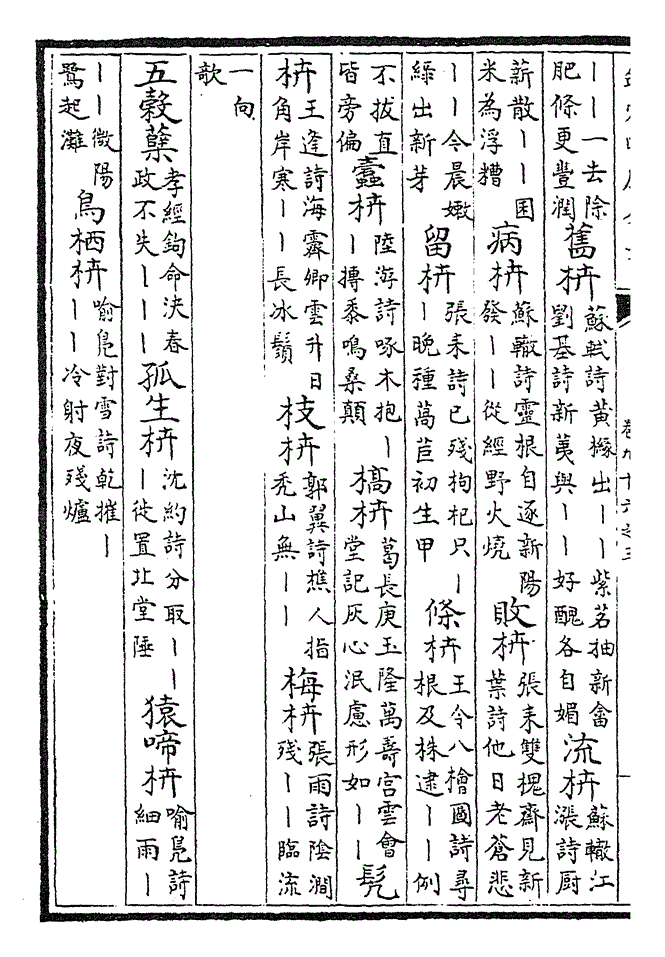 ｜｜一去除肥條更豐潤 舊枿 蘇軾詩黃橼出｜｜紫茗抽新畬劉基詩新荑與｜｜好醜各自媚 流枿 蘇轍江漲詩厨
薪散｜｜困米為浮糟 病枿 蘇轍詩靈根自逐新陽發｜｜從經野火燒 敗枿 張耒雙槐齋見新葉詩他日老蒼悲
｜｜令晨嫩綠出新芽 留枿 張耒詩已殘枸杞只｜｜晚種萵苣初生甲 條枿 王令八檜圖詩尋根及株逮｜｜例
不拔直皆旁偏 蠹枿 陸游詩啄木抱｜｜摶黍鳴桑顛 槁枿 葛長庚玉隆萬壽宮雲會堂記灰心泯慮形如｜｜ 髡
枿 王逢詩海霽卿雲升日角岸寒｜｜長冰鬚 枝枿 郭翼詩樵人指秃山無｜｜ 梅枿 張雨詩陰澗殘｜｜臨流
一向歌
五穀蘖 孝經鉤命決春政不失｜｜｜ 孤生枿 沈約詩分取｜｜｜徙置北堂陲 猿啼枿 喻鳧詩細雨｜
｜｜微陽鷺起灘 鳥栖枿 喻鳧對雪詩乾摧｜｜｜冷射夜殘爐